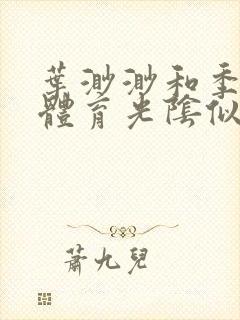 葉渺渺和季
體育光陰似
蕭九兒